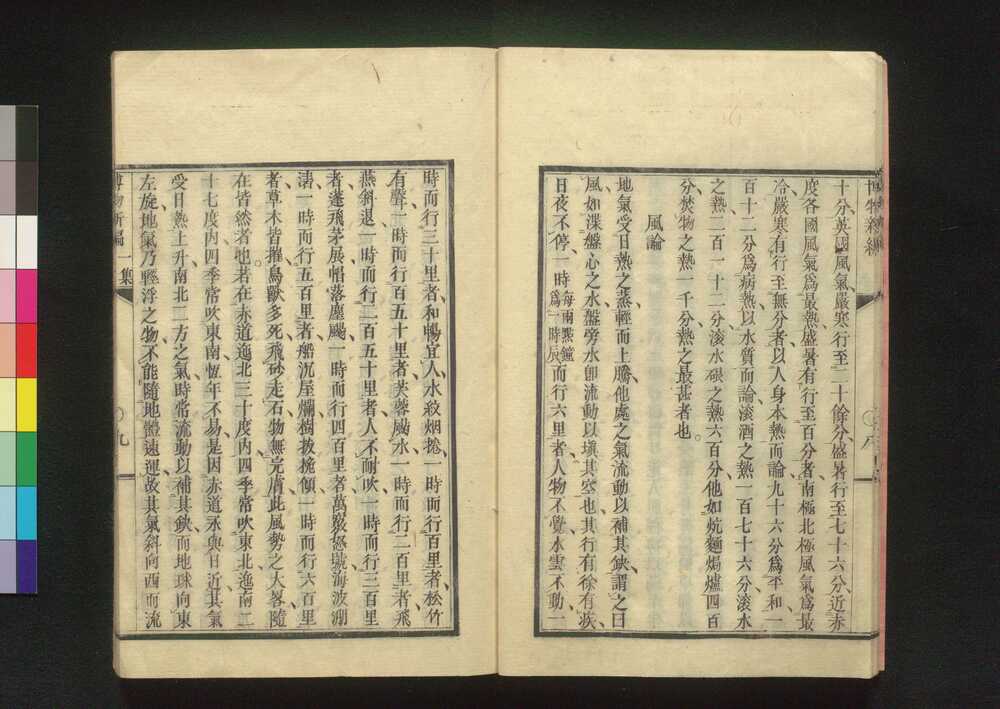 博物新編
十分英國風氣嚴寒行至二十餘分盛暑行至七十六分近赤
度各國風氣爲最熱盛暑有行至百分者南極北極風氣爲最
冷嚴寒有行至無分者以人身本熱而論九十六分爲平和一
百十二分爲病熱以水質而論滾酒之熱一百七十六分滾水
之熱二百一十二分滾水銀之熱六百分他如炕麵焗爐四百
分焚物之熱一千分熱之最甚者也
風論
地氣受日熱之蒸輕而上騰他處之氣流動以補其缺謂之曰
風如渫盤心之水盤旁水卽流動以塡其空也其行有徐有疾
日夜不停一時每兩點鐘爲一時辰而行六里者人物不覺水雲不動一
八
時而行三十里者和暢宜人水紋烟捲一時而行百里者松竹
有聲一時而行百五十里者芙蓉颭水一時而行二百里者飛
燕斜退一時而行二百五十里者人不耐吹一時而行三百里
者蓬飛茅展帽落塵颺一時而行四百里者萬竅怒號海波潮
湧一時而行五百里者船沉屋爛樹拔桅傾一時而行六百里
者草木皆摧鳥獸多死飛砂走石物無完膚此風勢之大畧隨
在皆然者也若在赤道迤北三十度內四季常吹東北迤南二
十七度內四季常吹東南恆年不易是因赤道永與日近其氣
受日熱上升南北二方之氣時常流動以補其缺而地球向東
左旋地氣乃輕浮之物不能隨地體速運故其氣斜向西而流
博物新編 一集
九